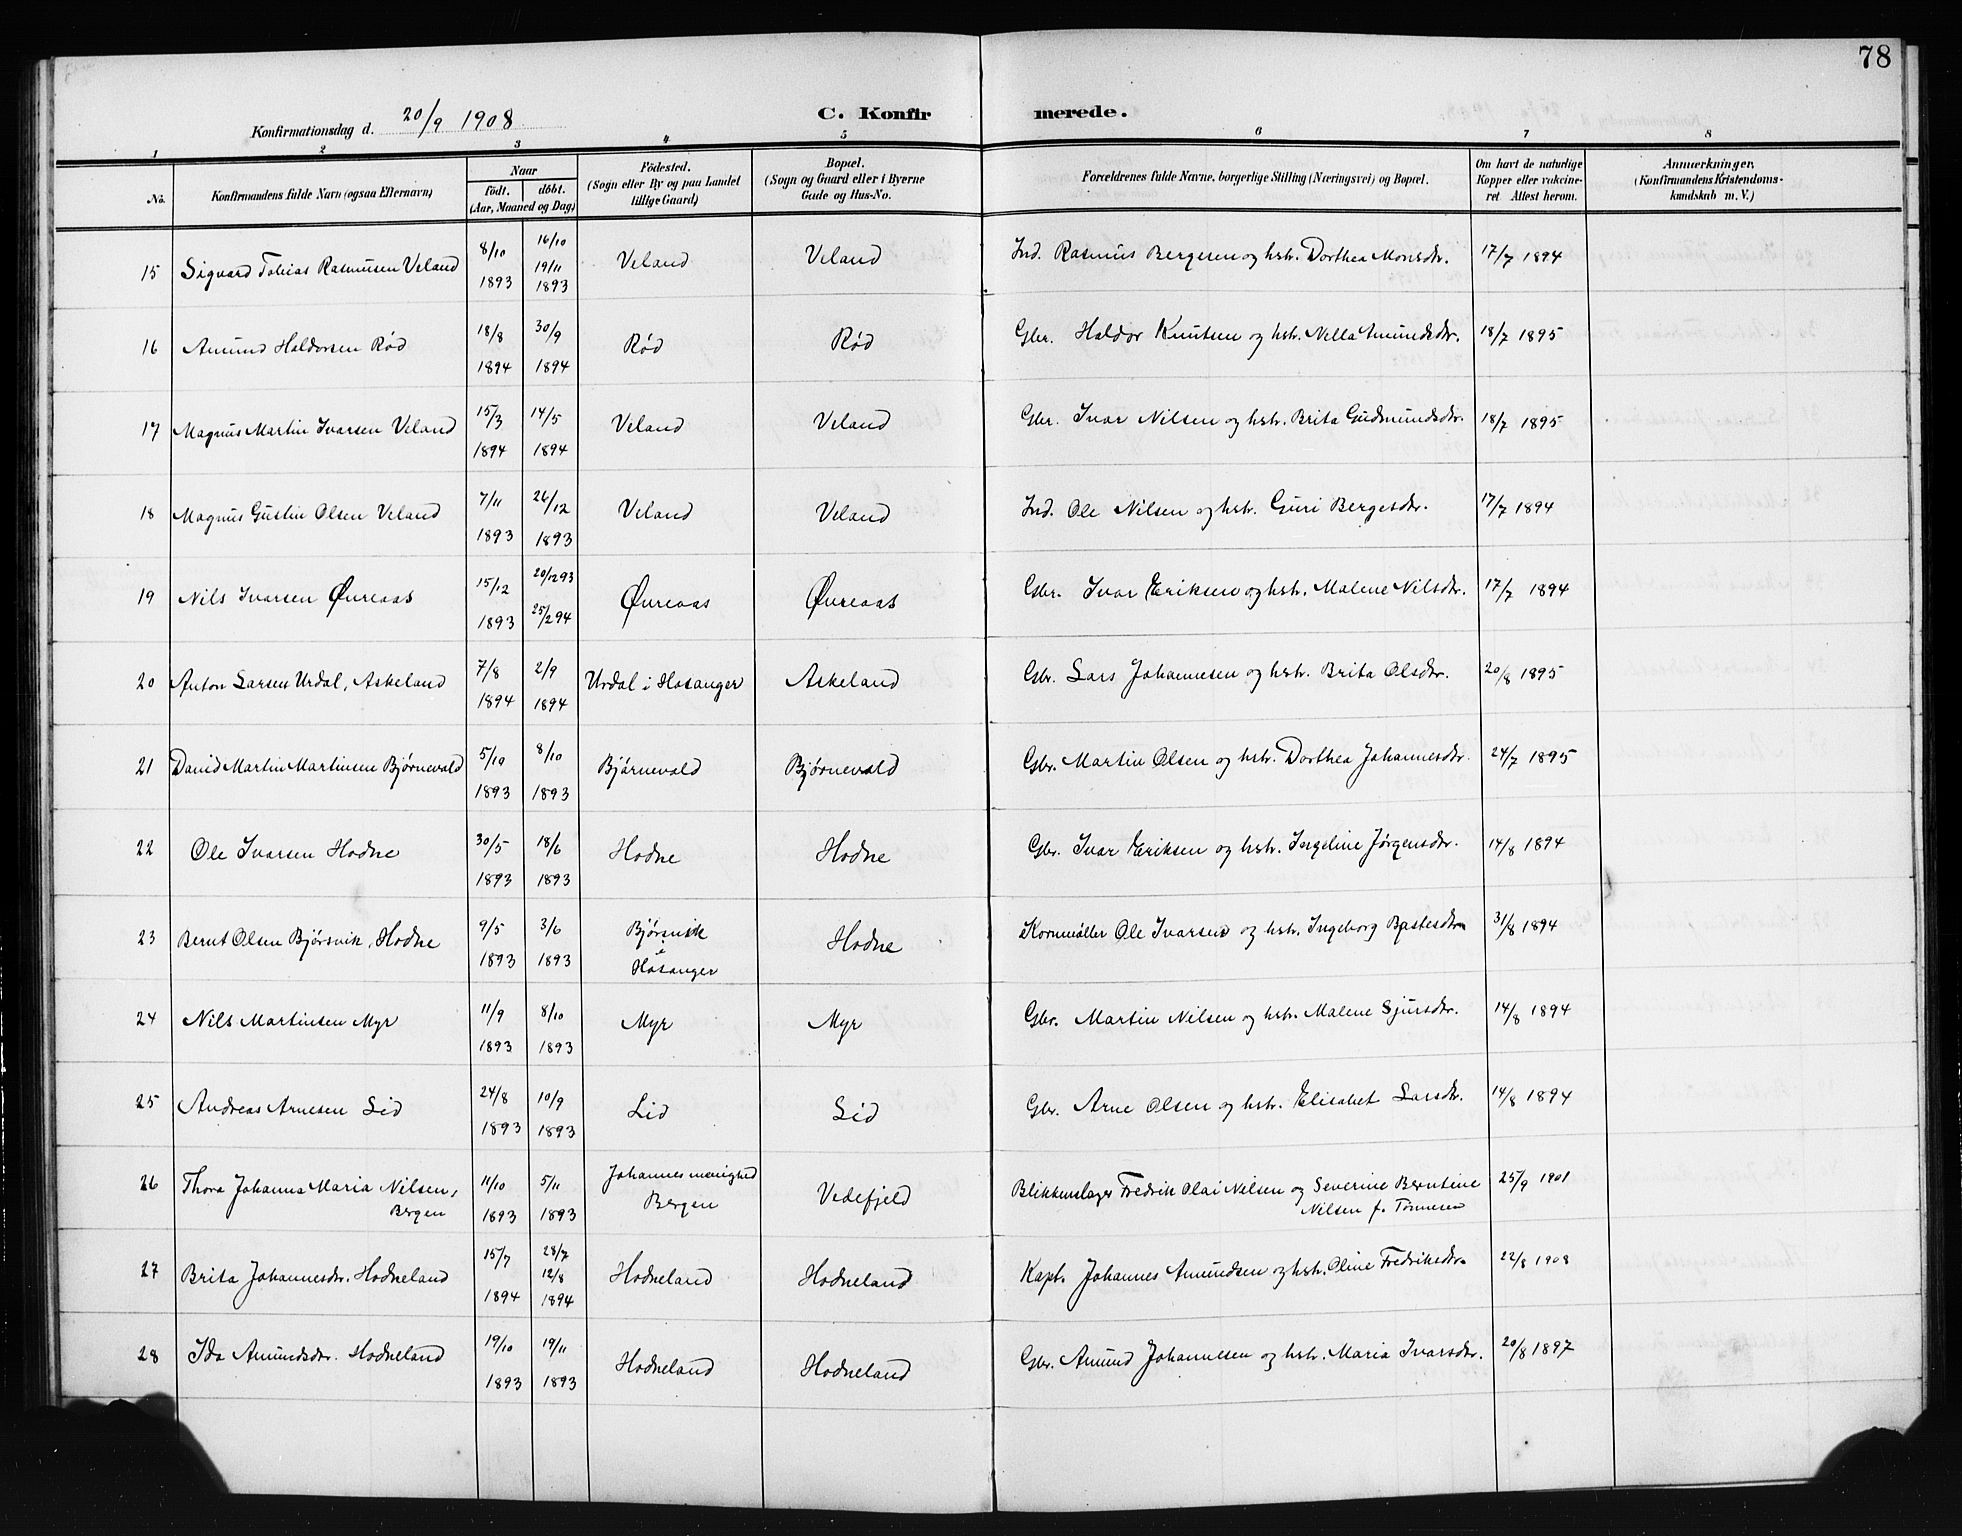 78
Konfirmationsdag d. 20/9 1908 C. Konfirmerede.
1 2 3 4 5 6 7 8
No. Konfirmandens fulde Navn (ogsaa Efternavn) Naar født. døbt. (Aar, Maaned og Dag) Fødested. (Sogn eller By og paa Landet tillige Gaard) Bopæl. (Sogn og Gaard eller i Byerne Gade og Hus-No. Forældrenes fulde Navne, borgerlige Stilling (Næringsvei) og Bopæl. Om havt de naturlige Kopper eller vakcineret Attest herom. Anmærkninger. (Konfirmandens Kristendomskundskab m. V.)
15 Sigvard Tobias Rasmusen Veland 8/10 1893 16/10 19/11 1893 Veland Veland Ind. Rasmus Bergesen og hstr. Dorthea Monsdtr. 17/7 1894
16 Amund Haldorsen Rød 18/8 1894 30/9 1894 Rød Rød Gbr. Haldor Knutsen og hstr. Nilla Amundsdtr. 18/7 1895
17 Magnus Martin Ivarsen Veland 15/3 1894 14/5 1894 Veland Veland Gbr. Ivar Nilsen og hstr. Brita Gudmundsdtr. 18/7 1895
18 Magnus Gustin Olsen Veland 7/11 1893 26/12 1893 Veland Veland Ind. Ole Nilsen og hstr. Guri Bergesdtr. 17/7 1894
19 Nils Ivarsen Øvreaas 15/12 1893 20/12 93 25/2 94 Øvreaas Øvreaas Gbr. Ivar Eriksen og hstr. Malene Nilsdtr. 17/7 1894
20 Anton Larsen Urdal, Askeland 7/8 1894 2/9 1894 Urdal i Hosanger Askeland Gbr. Lars Johannesen og hstr. Brita Olsdtr. 20/8 1895
21 David Martin Martinsen Bjørnevold 5/10 1893 8/10 1893 Bjørnevold Bjørnevold Gbr. Martin Olsen og hstr. Dorthea Johannesdtr. 24/7 1895
22 Ole Ivarsen Hodne 30/5 1893 18/6 1893 Hodne Hodne Gbr. Ivar Eriksen og hstr. Ingeline Jørgensdtr. 14/8 1894
23 Bernt Olsen Bjørsvik, Hodne 9/5 1893 3/6 1893 Bjørsvik i Hosanger Hodne Kornmøller Ole Ivarsen og hstr. Ingeborg 31/8 1894
24 Nils Martinsen Myr 11/9 1893 8/10 1893 Myr Myr Gbr. Martin Nilsen og hstr. Malene Sjursdtr. 14/8 1894
25 Andreas Arnesen Lid 24/8 1893 10/9 1893 Lid Lid Gbr. Arne Olsen og hstr. Elisabet Larsdtr. 14/8 1894
26 Thora Johanna Maria Nilsen, Bergen 11/10 1893 5/11 1893 Johannes menighed Bergen Vedefjeld Blikkenslager Fredrik Olai Nilsen og Severine Berntine Nilsen f. Tønnesen 25/9 1901
27 Brita Johannesdtr. Hodneland 15/7 1894 28/7 12/8 1894 Hodneland Hodneland Kapt. Johannes Amundsen og hstr. Oline Fredriksdtr. 22/8 1908
28 Ida Amundsdtr. Hodneland 19/10 1893 19/11 1893 Hodneland Hodneland Gbr. Amund Johannesen og hstr. Maria Ivarsdtr. 20/8 1897